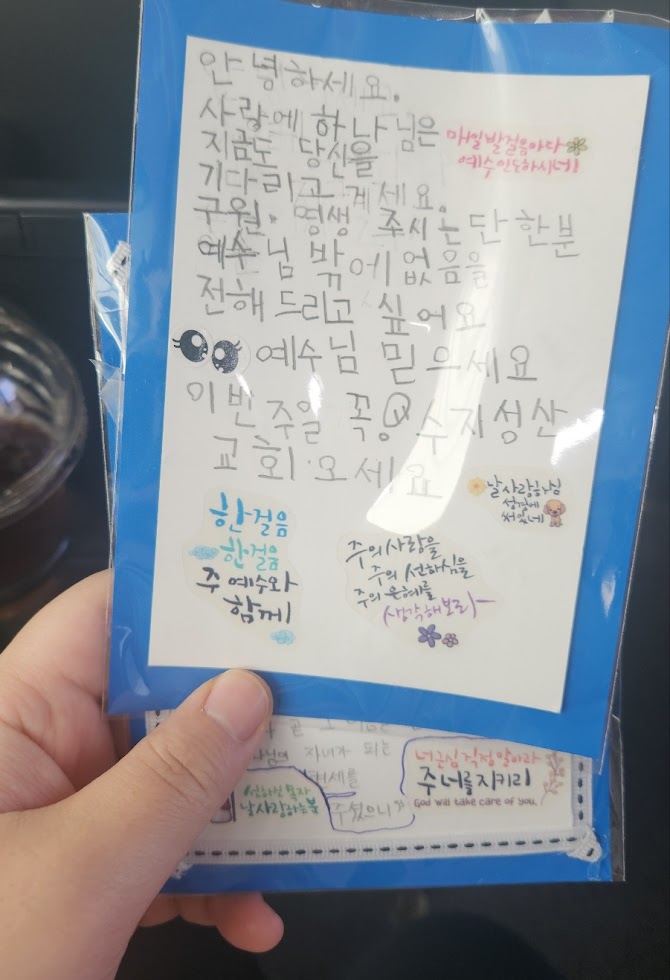 안녕하세요.
사랑에 하나님은
지금도 당신을
기다리고 계세요.
매일 발걸음마다
예수 인도하시네!
구원. 영생 주시는 단 한분
예수님 밖에 없음을
전해 드리고 싶어요
예수님 믿으세요
이번주일 꼭 수지성산
교회 오세요
날 사랑하심
성경에
써있네
한걸음
한걸음
주 예수와
함께
주의 사랑을
주의 선하심을
주의 은혜를
생각해보라
자녀가 되는
권세를
주셨으니"
너 근심 걱정 말아라
주 너를 지키리
God will take care of you.
선하신 목자
날 사랑하는 분